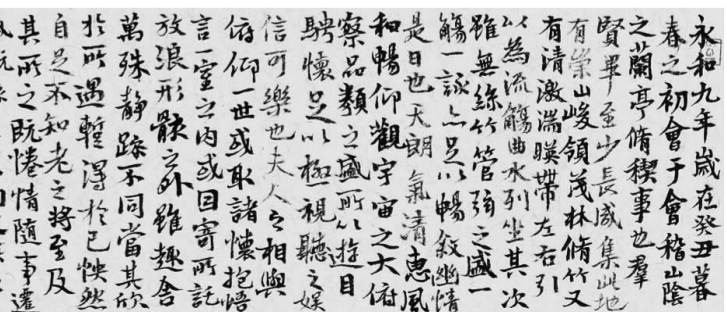 永和九年歲在癸丑暮
春之初會于會稽山陰
之蘭亭脩稧事也羣
賢畢至少長咸集此地
有崇山峻領茂林脩竹又
有清激湍暎帶左右引
以為流觴曲水列坐其次
雖無絲竹管弦之盛一
觴一詠亦足以暢敘幽情
是日也天朗氣清惠風
和暢仰觀宇宙之大俯
察品類之盛所以遊目
騁懷足以極視聽之娛
信可樂也夫人之相與
俯仰一世或取諸懷抱悟
言一室之內或因寄所託
放浪形骸之外雖趣舍
萬殊靜躁不同當其欣
於所遇暫得於己怏然
自足不知老之將至及
其所之既惓情隨事遷